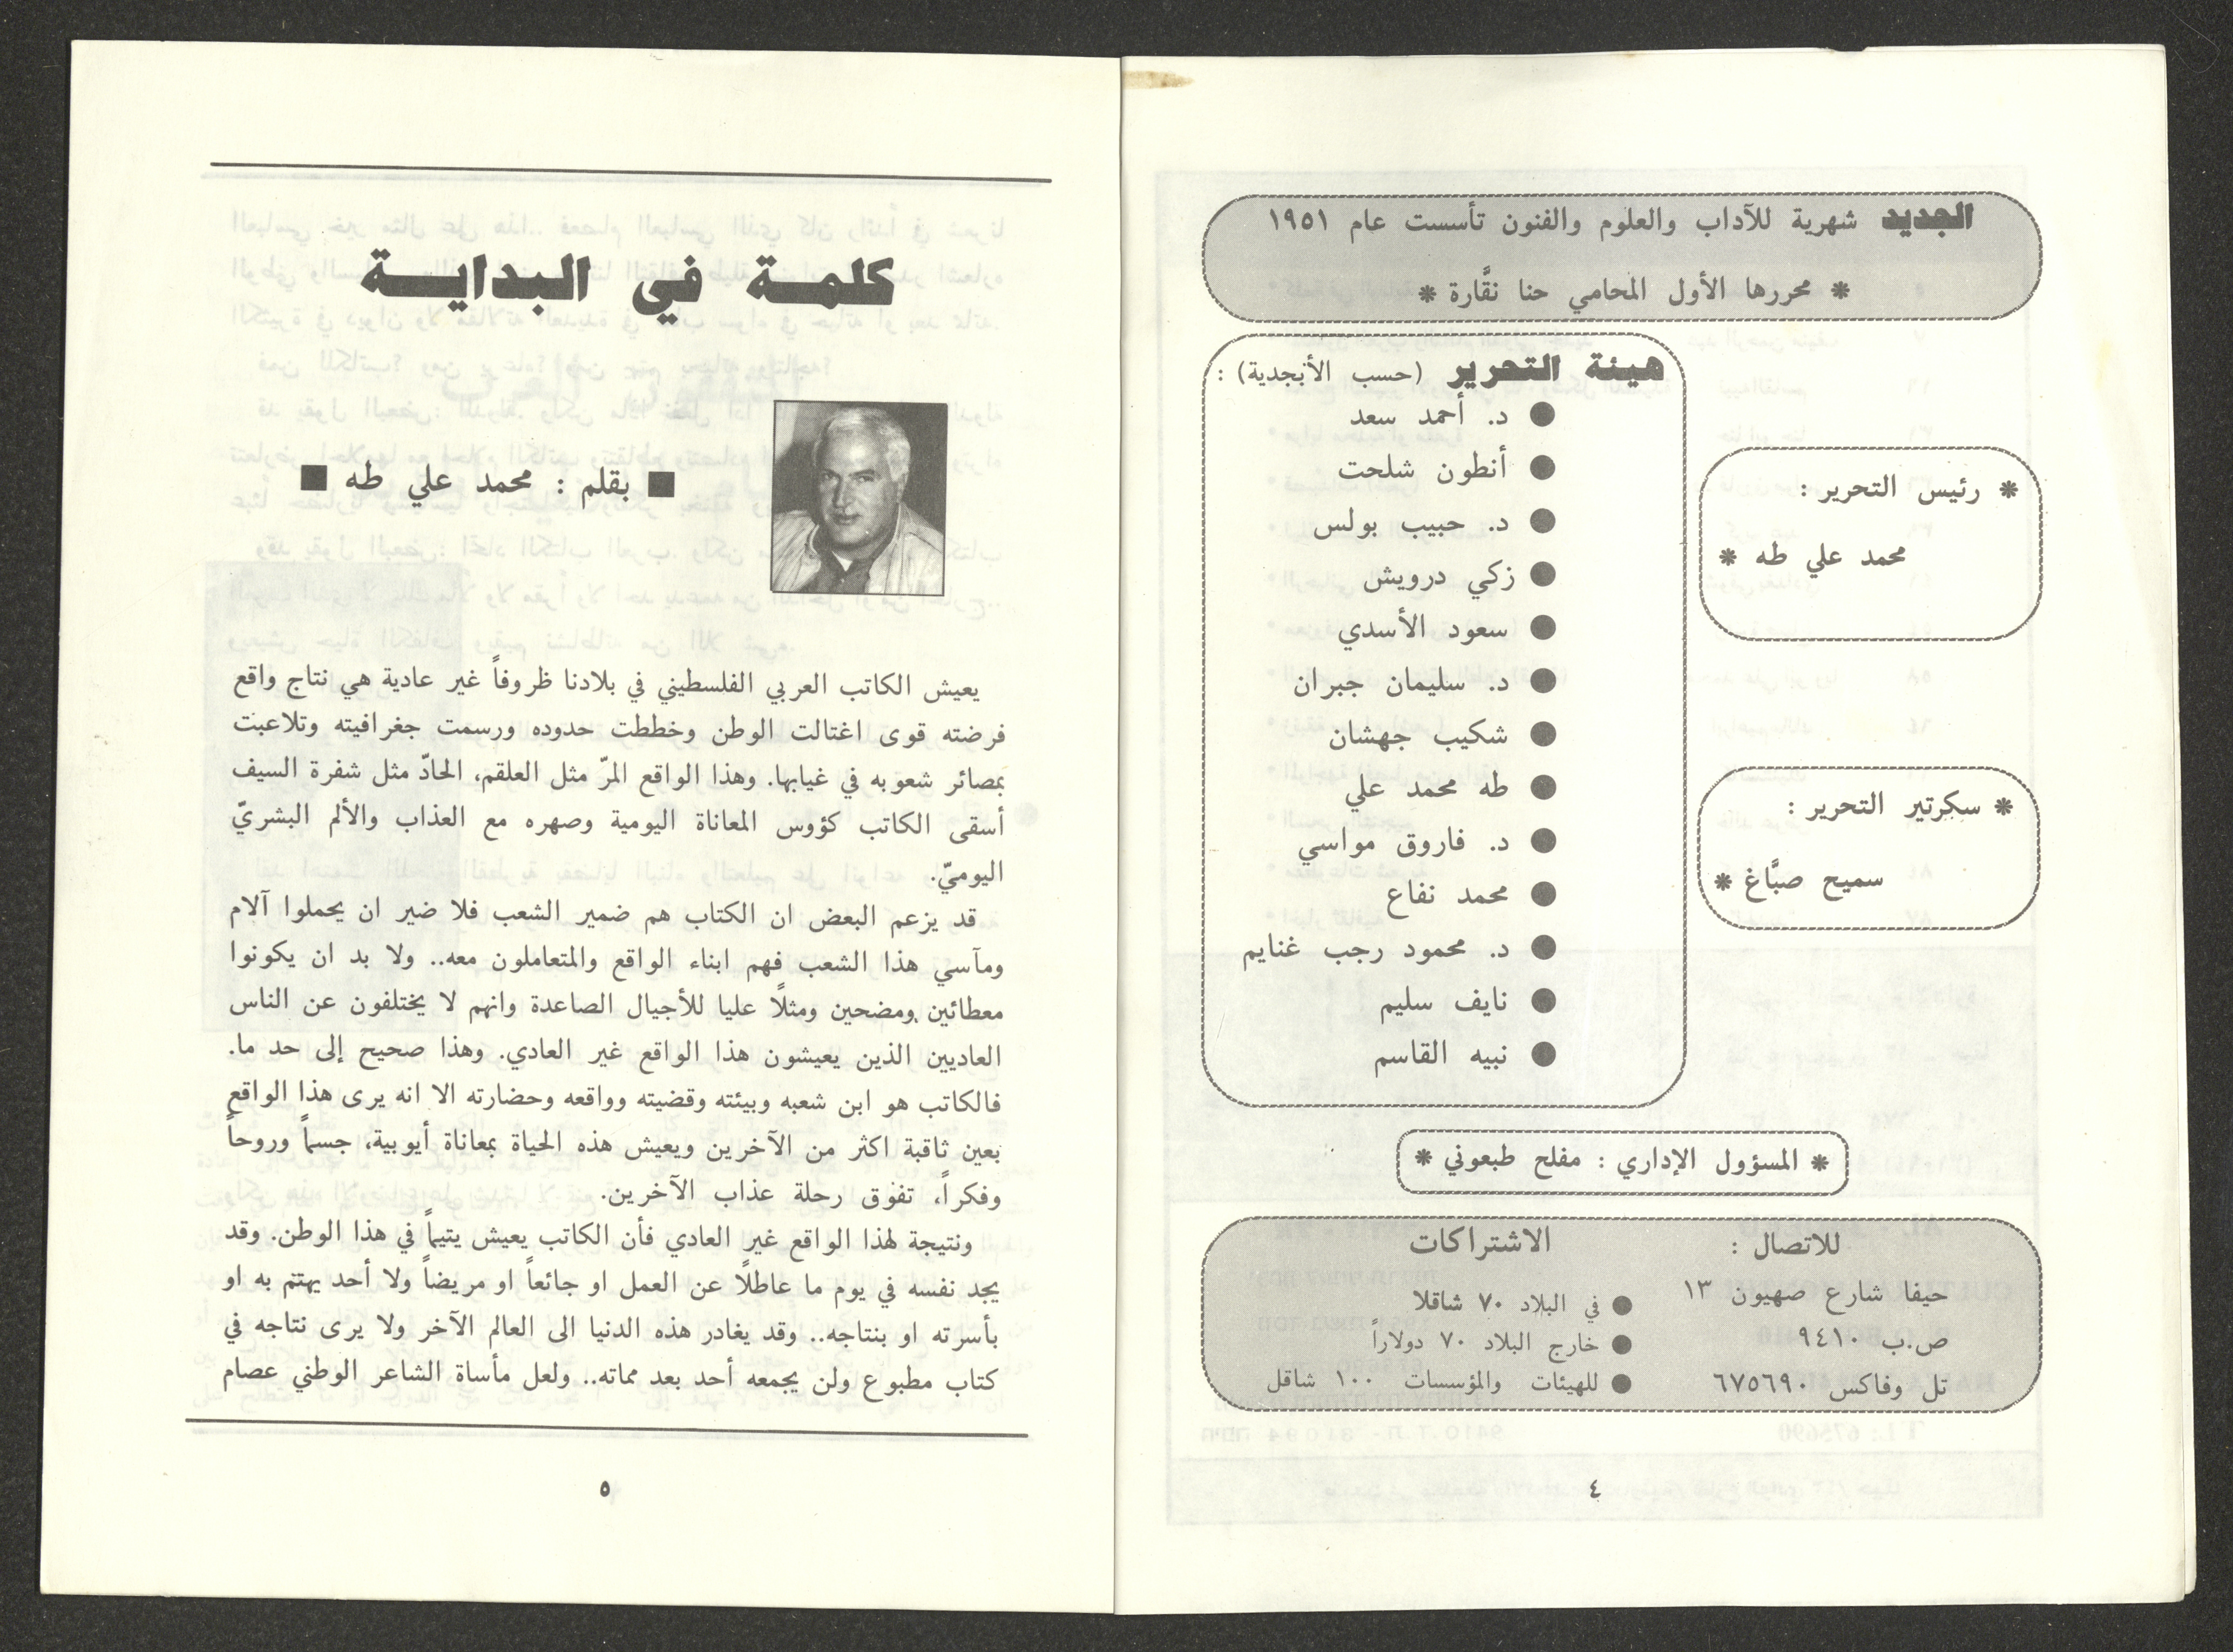 الجديد شهرية للآداب والعلوم والفنون تأسست عام ١٩٥١
* محررها الأول المحامي حنا نقَّارة *
* رئيس التحرير :
محمد علي طه *
* سكرتير التحرير :
سميح صبَّاغ *
هيئة التحرير (حسب الأبجدية) :
● د. أحمد سعد
● أنطون شلحت
● د. حبيب بولس
● زكي درويش
● سعود الأسدي
● د. سليمان جبران
● شكيب جهشان
● طه محمد علي
● د. فاروق مواسي
● محمد نفاع
● د. محمود رجب غنايم
● نايف سليم
● نبيه القاسم
* المسؤول الإداري : مفلح طبعوني *
للاتصال :
حيفا شارع صهيون ١٣
ص.ب ٩٤١٠
تل وفاكس ٦٧٥٦٩٠
الاشتراكات
● في البلاد ٧٠ شاقلا
● خارج البلاد ٧٠ دولاراً
● للهيئات والمؤسسات ١٠٠ شاقل
٤
كلمة في البداية
■ بقلم : محمد علي طه ■
يعيش الكاتب العربي الفلسطيني في بلادنا ظروفاً غير عادية هي نتاج واقع
فرضته قوى اغتالت الوطن وخططت حدوده ورسمت جغرافيته وتلاعبت
بمصائر شعوبه في غيابها. وهذا الواقع المرّ مثل العلقم، الحادّ مثل شفرة السيف
أسقى الكاتب كؤوس المعاناة اليومية وصهره مع العذاب والألم البشريّ
اليوميّ.
قد يزعم البعض ان الكتاب هم ضمير الشعب فلا ضير ان يحملوا آلام
ومآسي هذا الشعب فهم ابناء الواقع والمتعاملون معه.. ولا بد ان يكونوا
معطائين ومضحين ومثلًا عليا للأجيال الصاعدة وانهم لا يختلفون عن الناس
العاديين الذين يعيشون هذا الواقع غير العادي. وهذا صحيح إلى حد ما.
فالكاتب هو ابن شعبه وبيئته وقضيته وواقعه وحضارته الا انه يرى هذا الواقع
بعين ثاقبة اكثر من الآخرين ويعيش هذه الحياة بمعاناة أيوبية، جسماً وروحاً
وفكراً، تفوق رحلة عذاب الآخرين.
ونتيجة لهذا الواقع غير العادي فأن الكاتب يعيش يتيماً في هذا الوطن. وقد
يجد نفسه في يوم ما عاطلًا عن العمل او جائعاً او مريضاً ولا أحد يهتم به او
بأسرته او بنتاجه.. وقد يغادر هذه الدنيا الى العالم الآخر ولا يرى نتاجه في
كتاب مطبوع ولن يجمعه أحد بعد مماته.. ولعل مأساة الشاعر الوطني عصام
٥